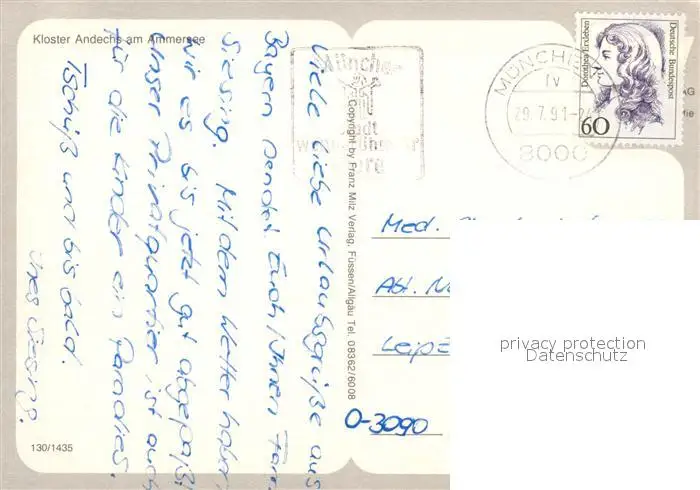 Kloster Andechs am Ammersee
Viele liebe Urlaubsgrüße aus
Bayern sendet Euch/Ihnen Fam.
Giesing. Mit dem Wetter haben
wir es bis jetzt gut abgepaßt
Unser Privatquartier ist auch
für die Kinder ein Paradies.
Tschüß und bis bald.
Ines Giesing.
130/1435
Copyright by Franz Milz Verlag, Füssen/Allgäu Tel. 08362/6008
München
Stadt
MÜNCHE
IV
29.7.91-2
8000
Dorothea Erxleben
Deutsche Bundespost
60
AG
Med.
Abt.
Leip
O-3090
privacy protection
Datenschutz